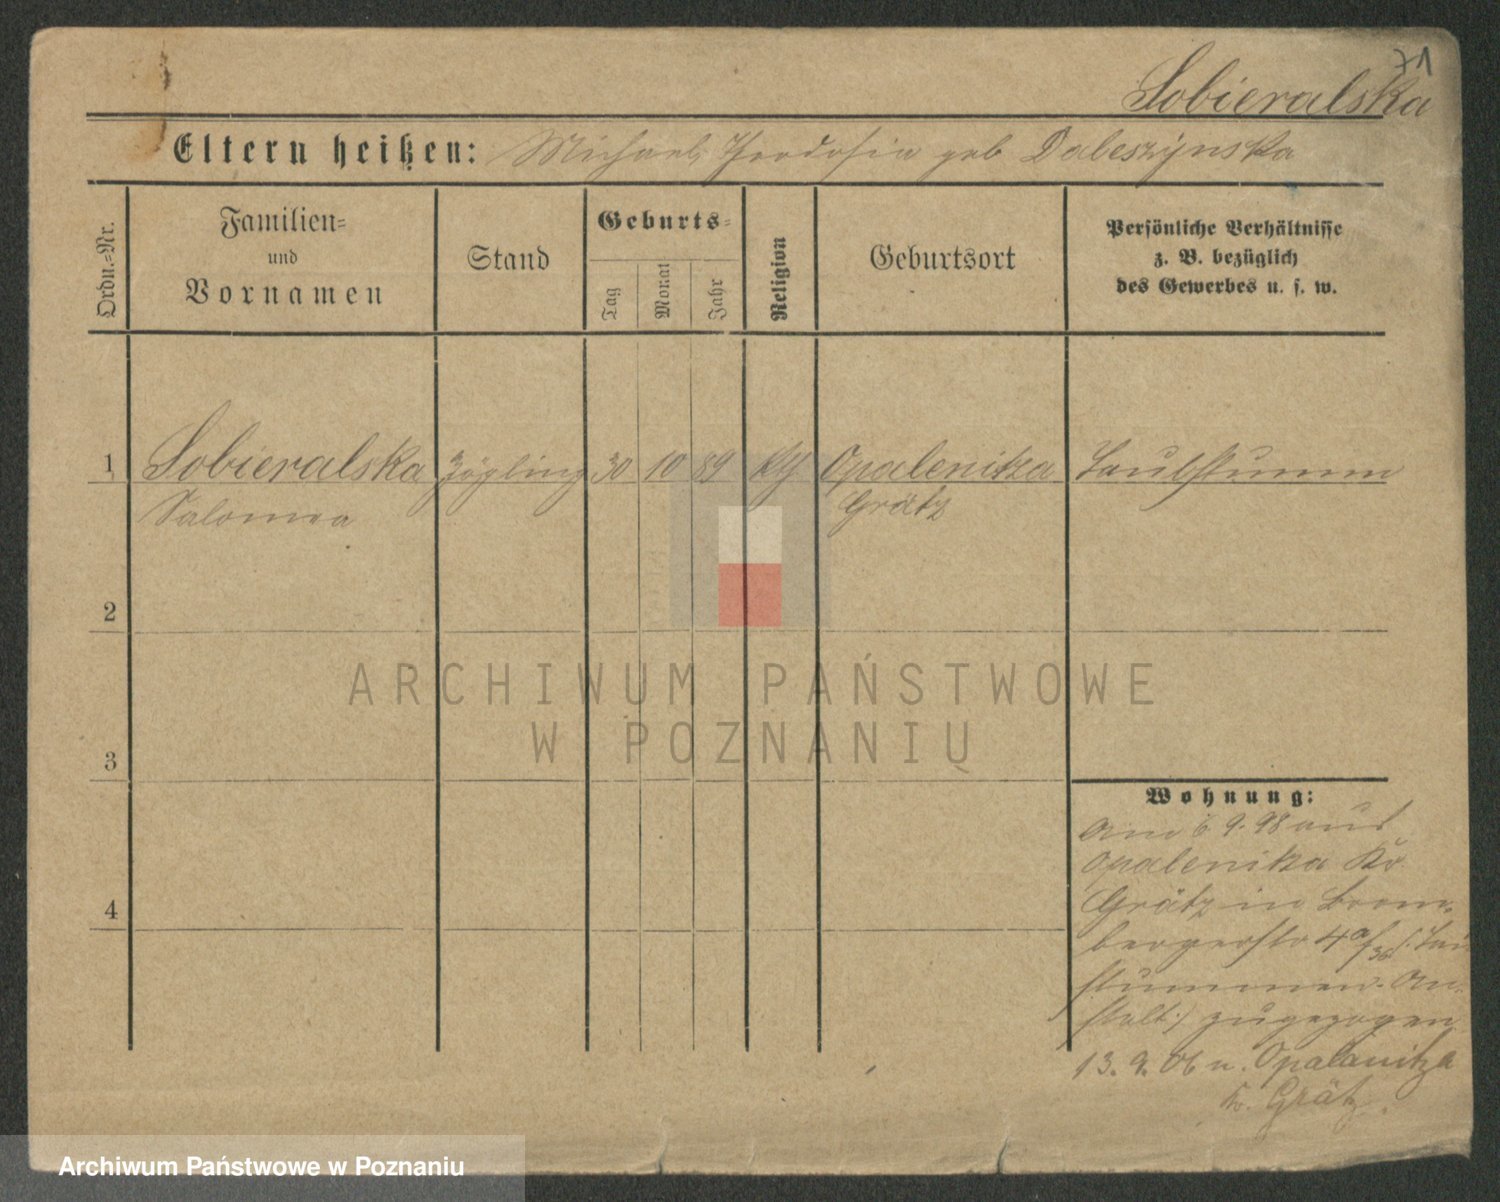 71
Sobieralska
Eltern heißen: Michael, Theodosia geb Dabeszynska
Ordn.=Nr.
Familien=
und
Vornamen
Stand
Geburts=
Tag
Monat
Jahr
Religion
Geburtsort
Persönliche Verhältnisse
z. B. bezüglich
des Gewerbes u. s. w.
1 Sobieralska Zögling 30 10 89 Opalenitza Taubstumm
Salomea Grätz
2
3
4
Wohnung:
Am 6 9. 98 aus
Opalenitza Kr.
Grätz in Brom-
bergerstr 4a/36 (: Tau
stummen-An-
stalt :) zugezogen
13. 9. 06 n. Opalenitza
Kr. Grätz.
ARCHIWUM PAŃSTWOWE
W POZNANIU
Archiwum Państwowe w Poznaniu